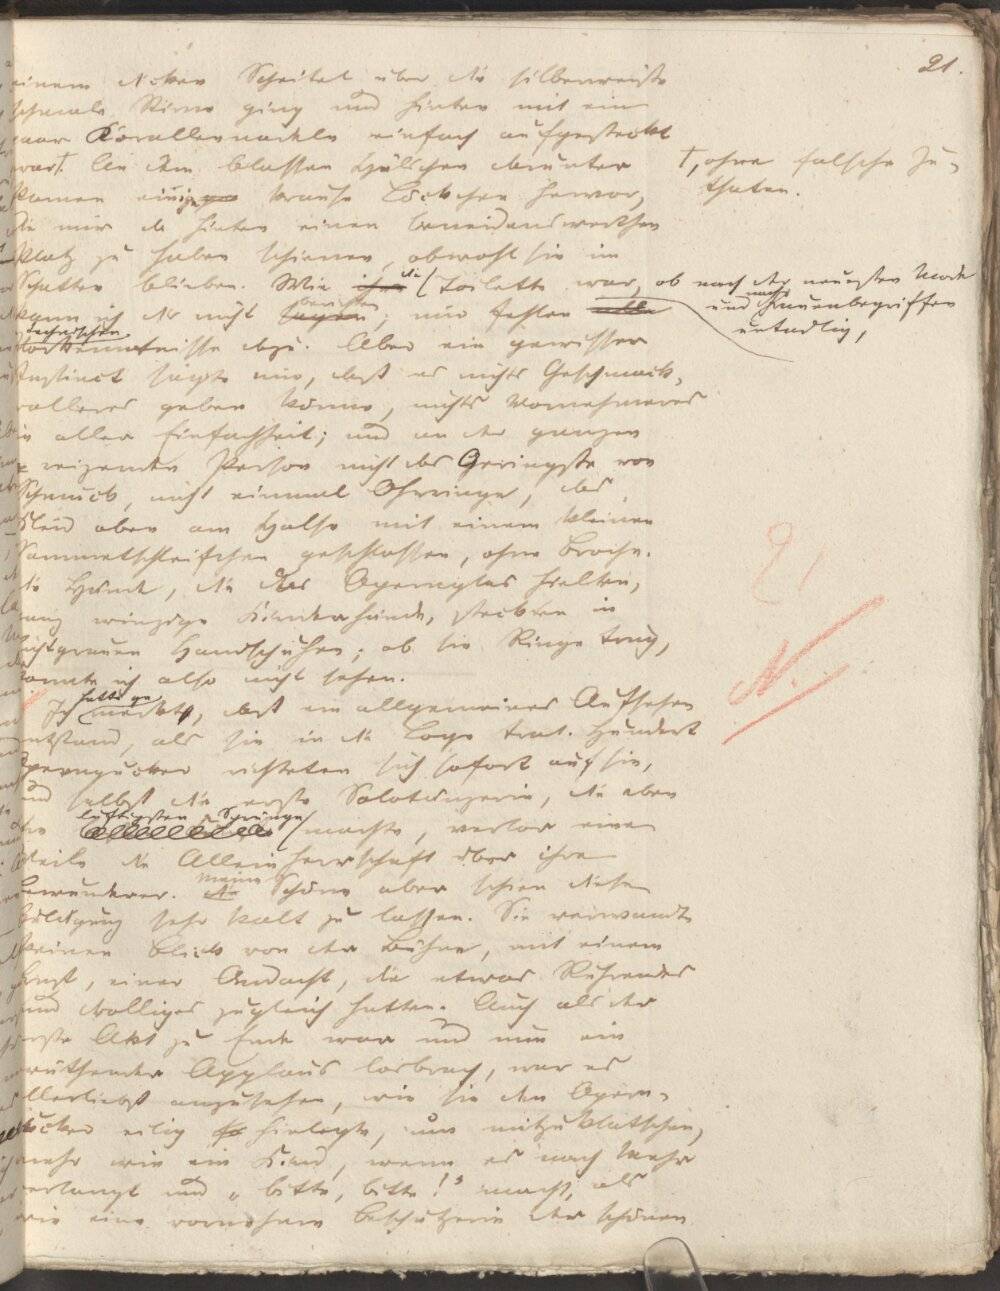 21.
einem dicken Scheitel über die silberweiße
schmale Stirne ging und hinten mit ein
paar Korallennadeln einfach aufgesteckt
war†. An dem blassen Hälschen darunter
†, ohne falsche Zu-
thaten.
kamen einige krause Löckchen hervor,
die mir da hinten einen beneidenswerthen
Platz zu haben schienen, obwohl sie im
Schatten blieben. Wie die Toilette war, ob nach der neuesten Mode
und nach Frauenbegriffen
untadlig,
kann ich dir nicht berichten; mir fehlen alle
technischen
Vorkenntnisse dazu. Aber ein gewisser
Instinct sagte mir, daß es nichts Geschmack-
volleres geben könne, nichts Vornehmeres
in aller Einfachheit; und an der ganzen
reizenden Person nicht das Geringste von
Schmuck, nicht einmal Ohrringe, das
Kleid oben am Halse mit einem kleinen
Sammetschleifchen geschlossen, ohne Broche.
Die Hände, die das Opernglas hielten,
ganz winzige Kinderhände, steckten in
lichtgrauen Handschuhen; ob sie Ringe trug,
konnte ich also nicht sehen.
21
N.
Ich hatte gemerkt, daß ein allgemeines Aufsehen
entstand, als sie in die Loge trat. Hundert
Operngucker richteten sich sofort auf sie,
und selbst die erste Solotänzerin, die eben
ihre luftigsten Sprünge machte, verlor eine
Weile die Alleinherrschaft über ihre
Bewunderer. Meine Schöne aber schien diese
Huldigung sehr kalt zu lassen. Sie verwandte
keinen Blick von der Bühne, mit einem
Ernst, einer Andacht, die etwas Rührendes
und Drolliges zugleich hatten. Auch als der
erste Akt zu Ende war und nun ein
wüthender Applaus losbrach, war es
allerliebst anzusehen, wie sie den Opern-
gucker eilig hinlegte, um mitzuklatschen,
mehr wie ein Kind, wenn es nach Mehr
verlangt und „bitte, bitte!" macht, als
wie eine vornehme Beschützerin der schönen